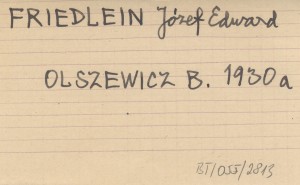 FRIEDLEIN Józef Edward
OLSZEWICZ B. 1930a
BT/055/2813